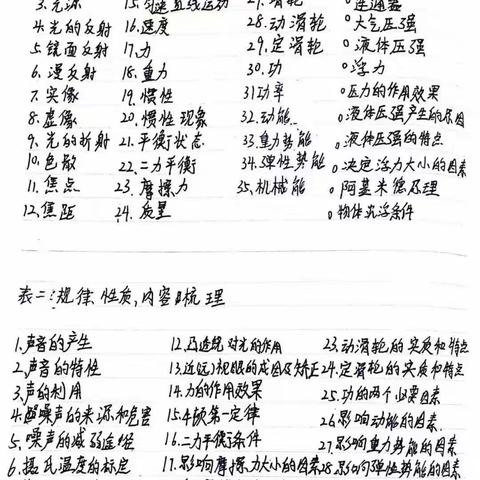 3.光源 15.匀速直线运动 29.滑轮 o连通器
4.光的反射 16.速度 28.动滑轮 o大气压强
5.镜面反射 17.力 29.定滑轮 o液体压强
6.漫反射 18.重力 30.功 o浮力
7.实像 19.惯性 31功率 o压力的作用效果
8.虚像 20.惯性现象 32.动能 o液体压强产生的原因
9.光的折射 21.平衡状态 33.重力势能 o液体压强的特点
10.色散 22.二力平衡 34.弹性势能 o决定浮力大小的因素
11.焦点 23.摩擦力 35.机械能 o阿基米德原理
12.焦距 24.质量 o物体沉浮条件
表二:规律、性质,内容的梳理
1.声音的产生 12.凸透镜对光的作用 23.动滑轮的实质和特点
2.声音的特性 13.近(远)视眼的成因及矫正 24.定滑轮的实质和特点
3.声的利用 14.力的作用效果 25.功的两个必要因素
4.噪声的来源和危害 15.牛顿第一定律 26.影响动能的因素
5.噪声的减弱途径 16.二力平衡条件 27.影响重力势能的因素
6.摄氏温度的标定 17.影响摩擦力大小的因素 28.影响弹性势能的因素